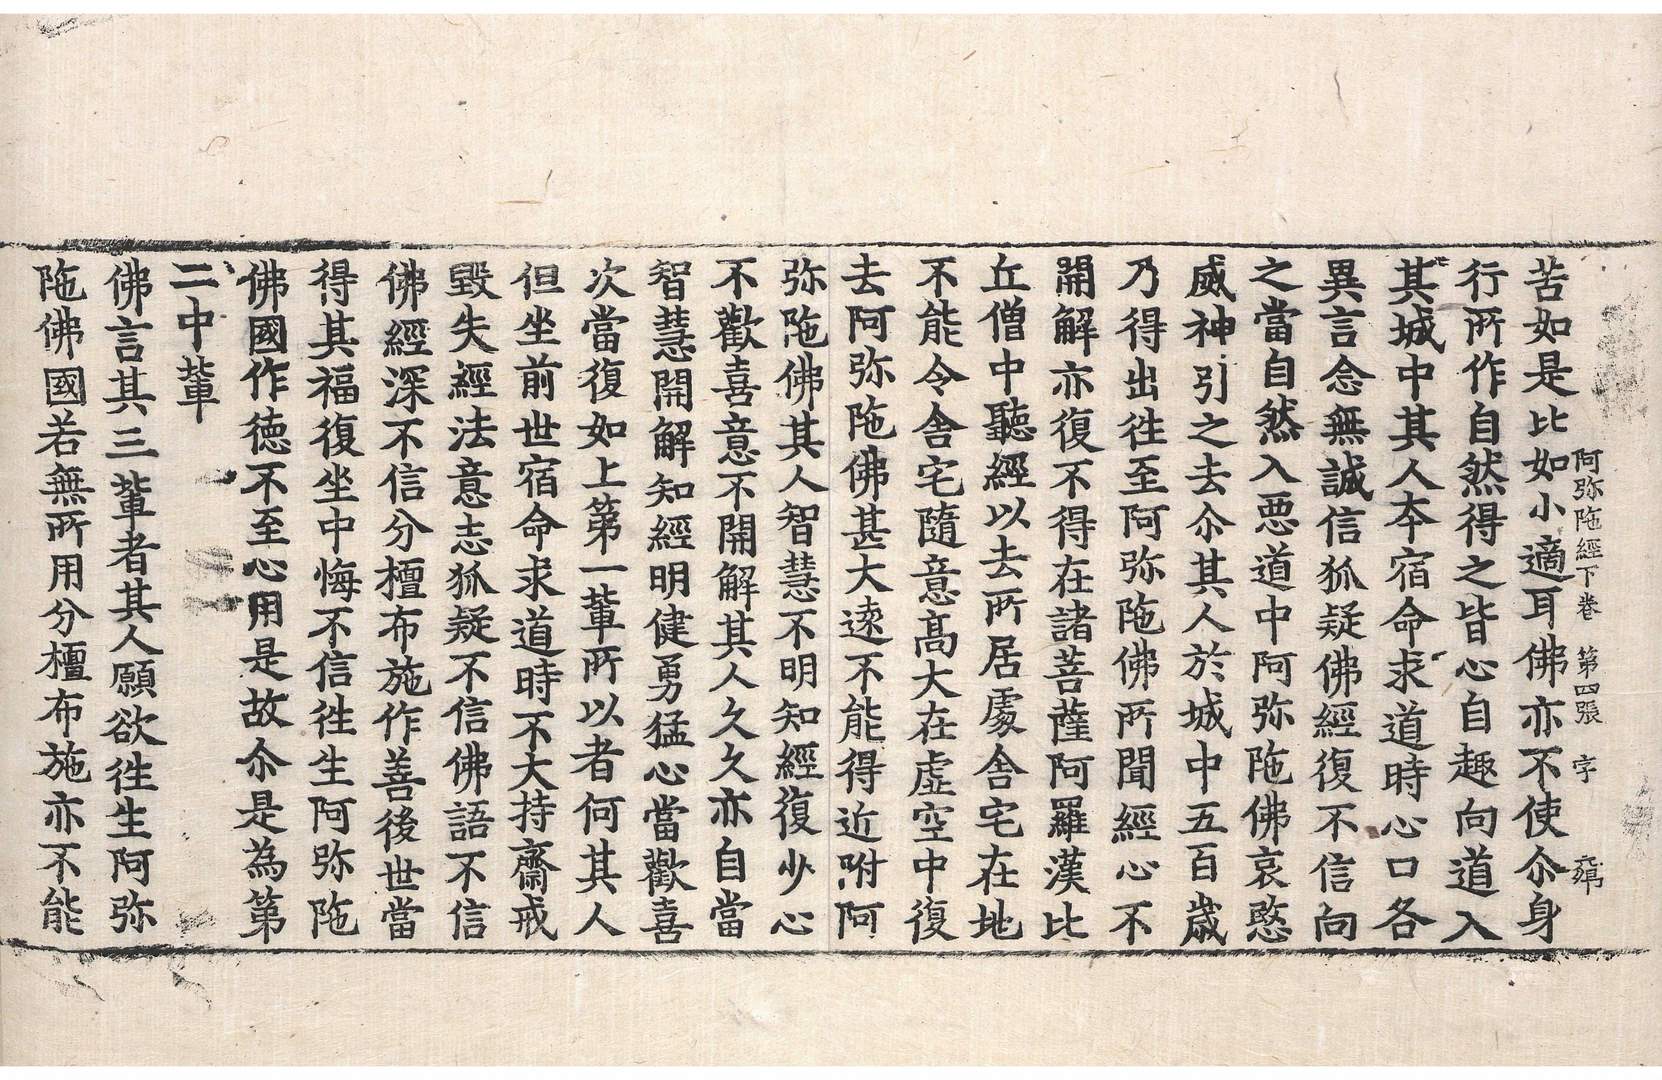 阿弥陁經下卷 第四張 字
苦如是比如小適耳佛亦不使尒身
行所作自然得之皆心自趣向道入
其城中其人夲宿命求道時心口各
異言念無誠信狐疑佛經復不信向
之當自然入悪道中阿弥陁佛哀愍
威神引之去尒其人於城中五百歲
乃得出徃至阿弥陁佛所聞經心不
開解亦復不得在諸菩薩阿羅漢比
丘僧中聽經以去所居處舍宅在地
不能令舍宅隨意髙大在虛空中復
去阿弥陁佛甚大逺不能得近附阿
弥陁佛其人智慧不明知經復少心
不歡喜意不開解其人久久亦自當
智慧開解知經明健勇猛心當歡喜
次當復如上第一軰所以者何其人
但坐前世宿命求道時不大持齋戒
毀失經法意志狐疑不信佛語不信
佛經深不信分檀布施作善後世當
得其福復坐中悔不信徃生阿弥陁
佛國作德不至心用是故尒是為第
二中軰
佛言其三軰者其人願欲徃生阿弥
陁佛國若無所用分檀布施亦不能